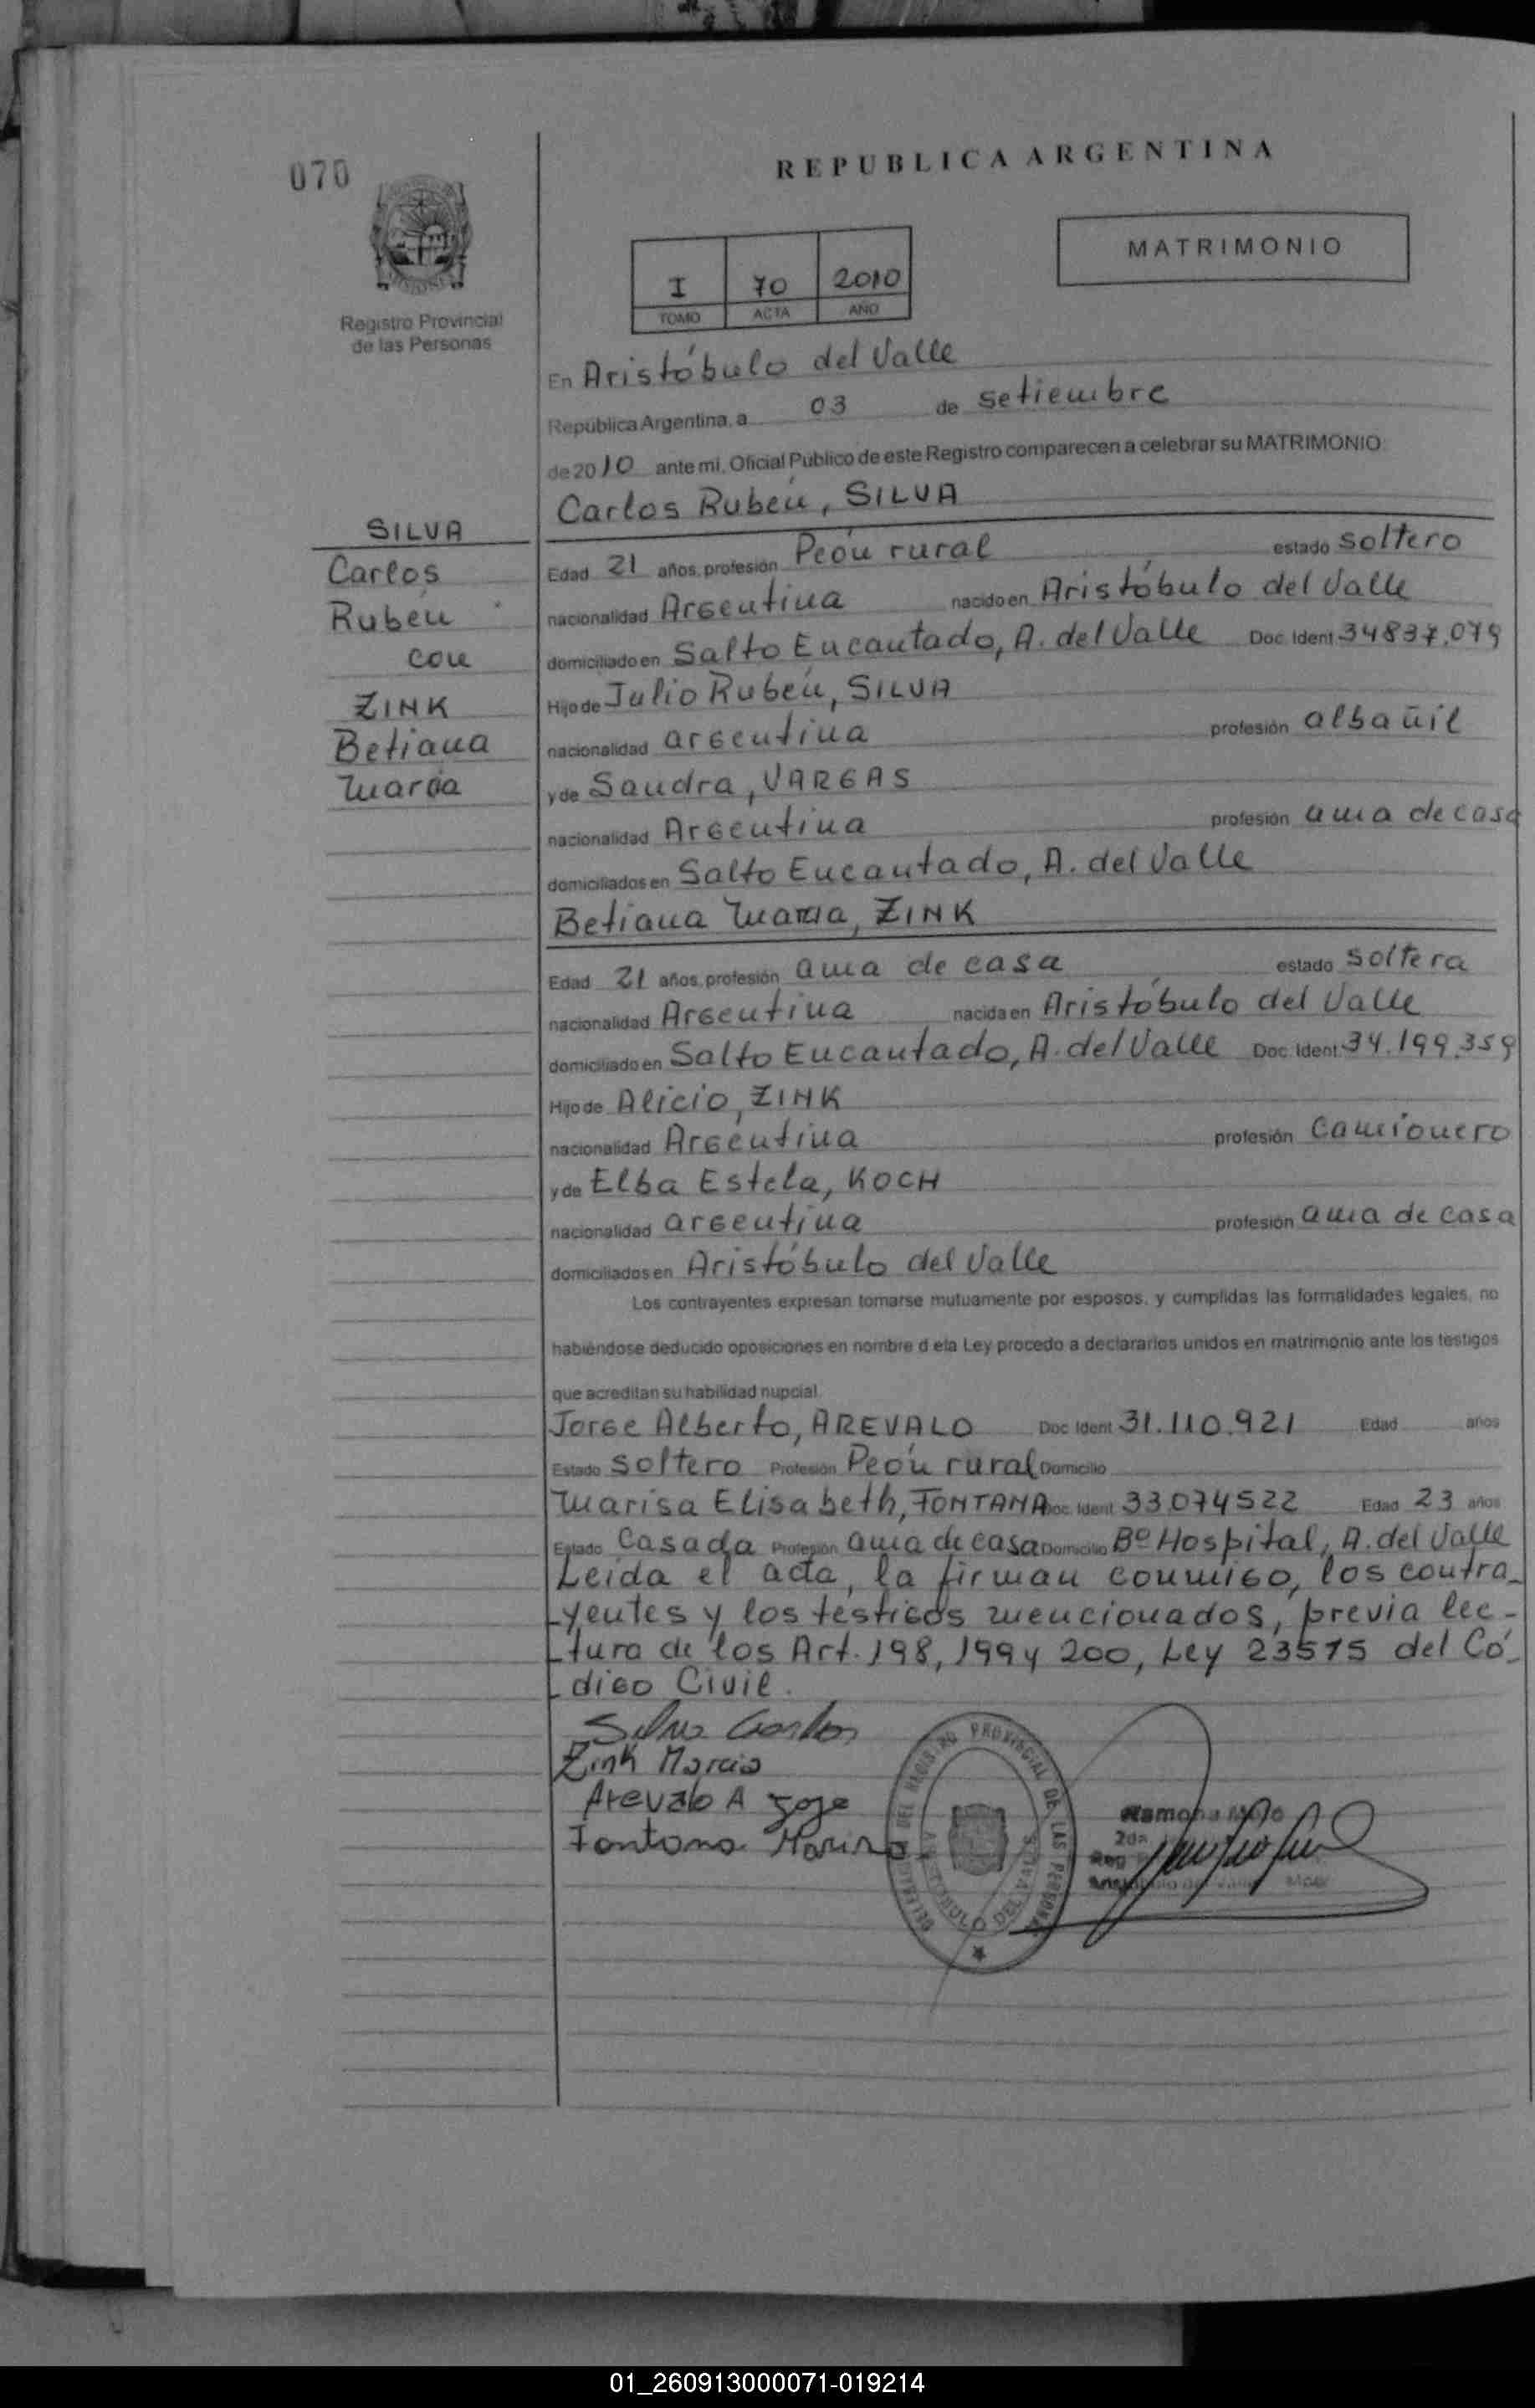 070
REPUBLICA ARGENTINA
MATRIMONIO
I 70 2010
TOMO ACTA AÑO
Registro Provincial
de las Personas
En Aristóbulo del Valle
República Argentina, a 03 de setiembre
de 2010 ante mi, Oficial Público de este Registro comparecen a celebrar su MATRIMONIO:
Carlos Rubén, SILVA
SILVA
Carlos
Rubén
con
ZINK
Betiana
Marcia
Edad 21 años, profesión Peón rural estado soltero
nacionalidad Argentina nacido en Aristóbulo del Valle
domiciliado en Salto Encantado, A. del Valle Doc. Ident. 34837.079
Hijo de Julio Rubén, SILVA
nacionalidad argentina profesión albañil
y de Sandra, VARGAS
nacionalidad Argentina profesión ama de casa
domiciliados en Salto Encantado, A. del Valle
Betiana Marcia, ZINK
Edad 21 años, profesión ama de casa estado soltera
nacionalidad Argentina nacida en Aristóbulo del Valle
domiciliado en Salto Encantado, A. del Valle Doc. Ident. 34.199.359
Hijo de Alicio, ZINK
nacionalidad Argentina profesión Camionero
y de Elba Estela, KOCH
nacionalidad argentina profesión ama de casa
domiciliados en Aristóbulo del Valle
Los contrayentes expresan tomarse mutuamente por esposos, y cumplidas las formalidades legales, no
habiéndose deducido oposiciones en nombre d ela Ley procedo a declararlos unidos en matrimonio ante los testigos
que acreditan su habilidad nupcial.
Jorge Alberto, AREVALO Doc. Ident. 31.110.921 Edad años
Estado soltero Profesión Peón rural Domicilio
Marisa Elisabeth, FONTANA Doc. Ident. 33.074522 Edad 23 años
Estado Casada Profesión ama de casa Domicilio Bº Hospital, A. del Valle
Leída el acta, la firman conmigo, los contra-
-yentes y los testigos mencionados, previa lec-
-tura de los Art. 198, 199 y 200, Ley 23515 del Có-
-digo Civil.
Silva Carlos
Zink Marcia
Arevalo A Jorge
Fontana Marisa
DEL REGISTRO PROVINCIAL DE LAS PERSONAS
ARISTOBULO DEL VALLE
Ramona
2da
Reg
01_260913000071-019214